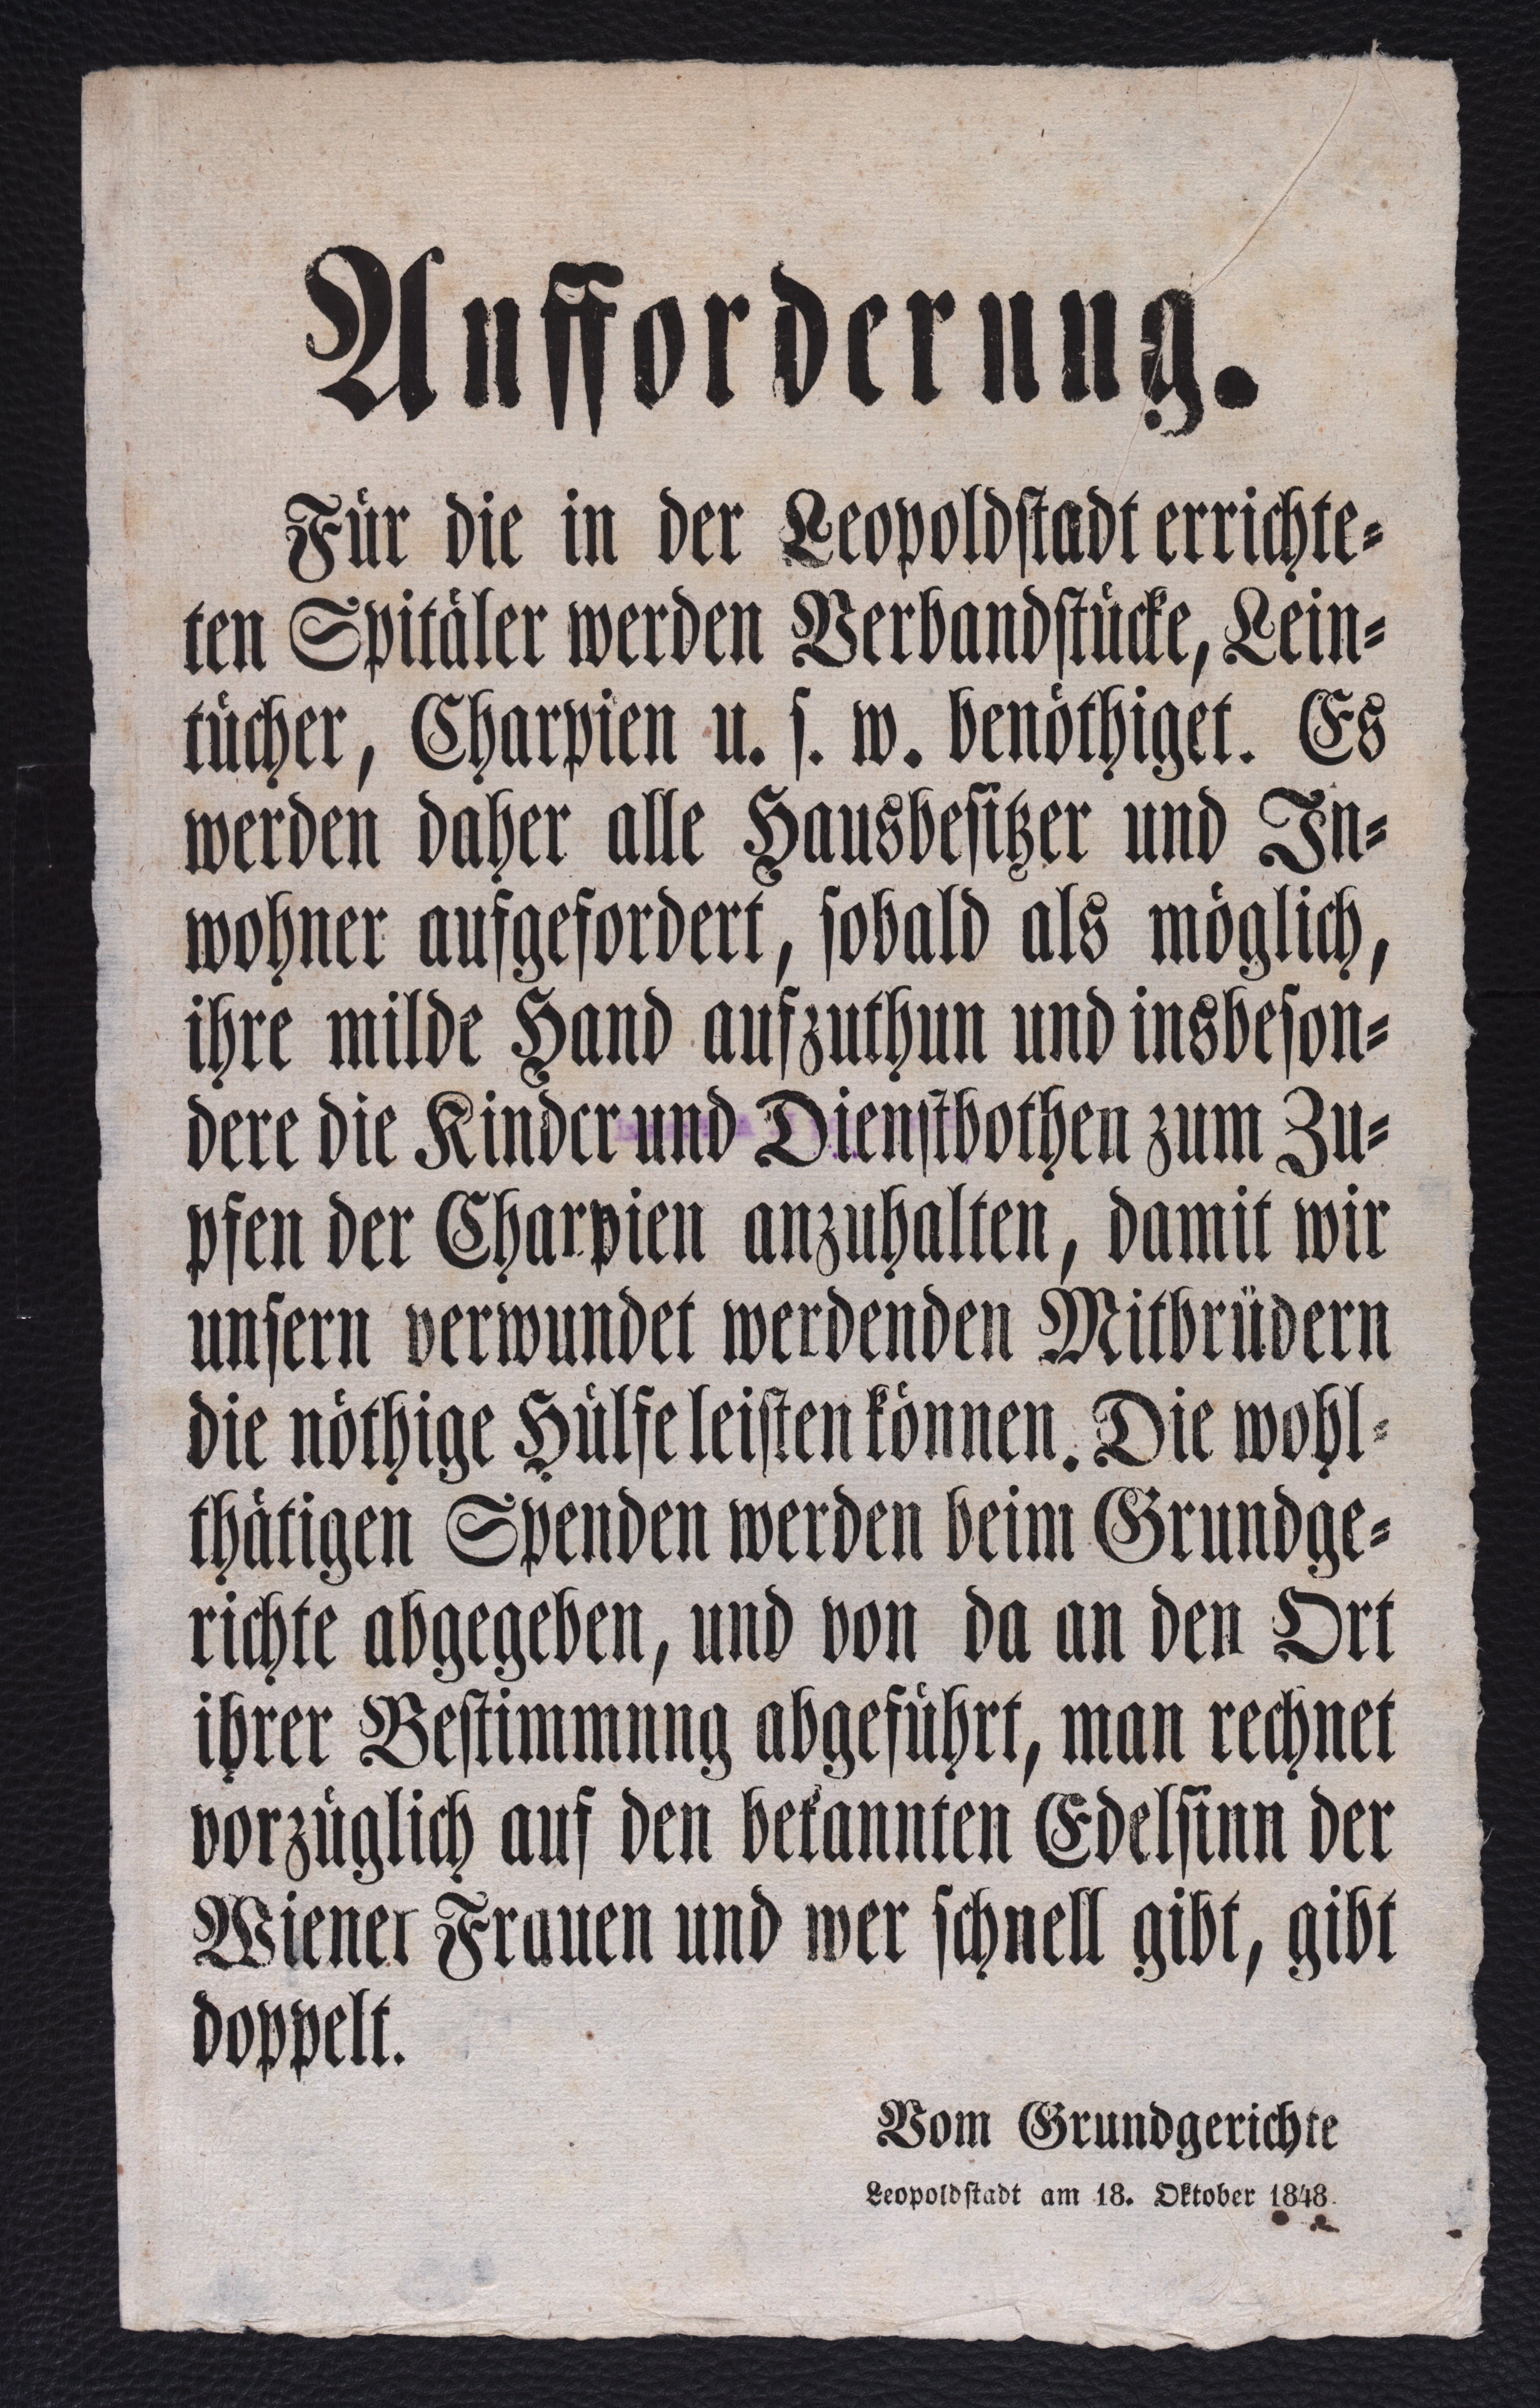 Aufforderung.
Für die in der Leopoldstadt errichte-
ten Spitäler werden Verbandstücke, Lein-
tücher, Charpien u. s. w. benöthiget. Es
werden daher alle Hausbesitzer und In-
wohner aufgefordert, sobald als möglich,
ihre milde Hand aufzuthun und insbeson-
dere die Kinder und Dienstbothen zum Zu-
pfen der Charpien anzuhalten, damit wir
unsern verwundet werdenden Mitbrüdern
die nöthige Hülfe leisten können. Die wohl-
thätigen Spenden werden beim Grundge-
richte abgegeben, und von da an den Ort
ihrer Bestimmnng abgeführt, man rechnet
vorzüglich auf den bekannten Edelsinn der
Wiener Frauen und wer schnell gibt, gibt
doppelt.
Vom Grundgerichte
Leopoldstadt am 18. Oktober 1848.